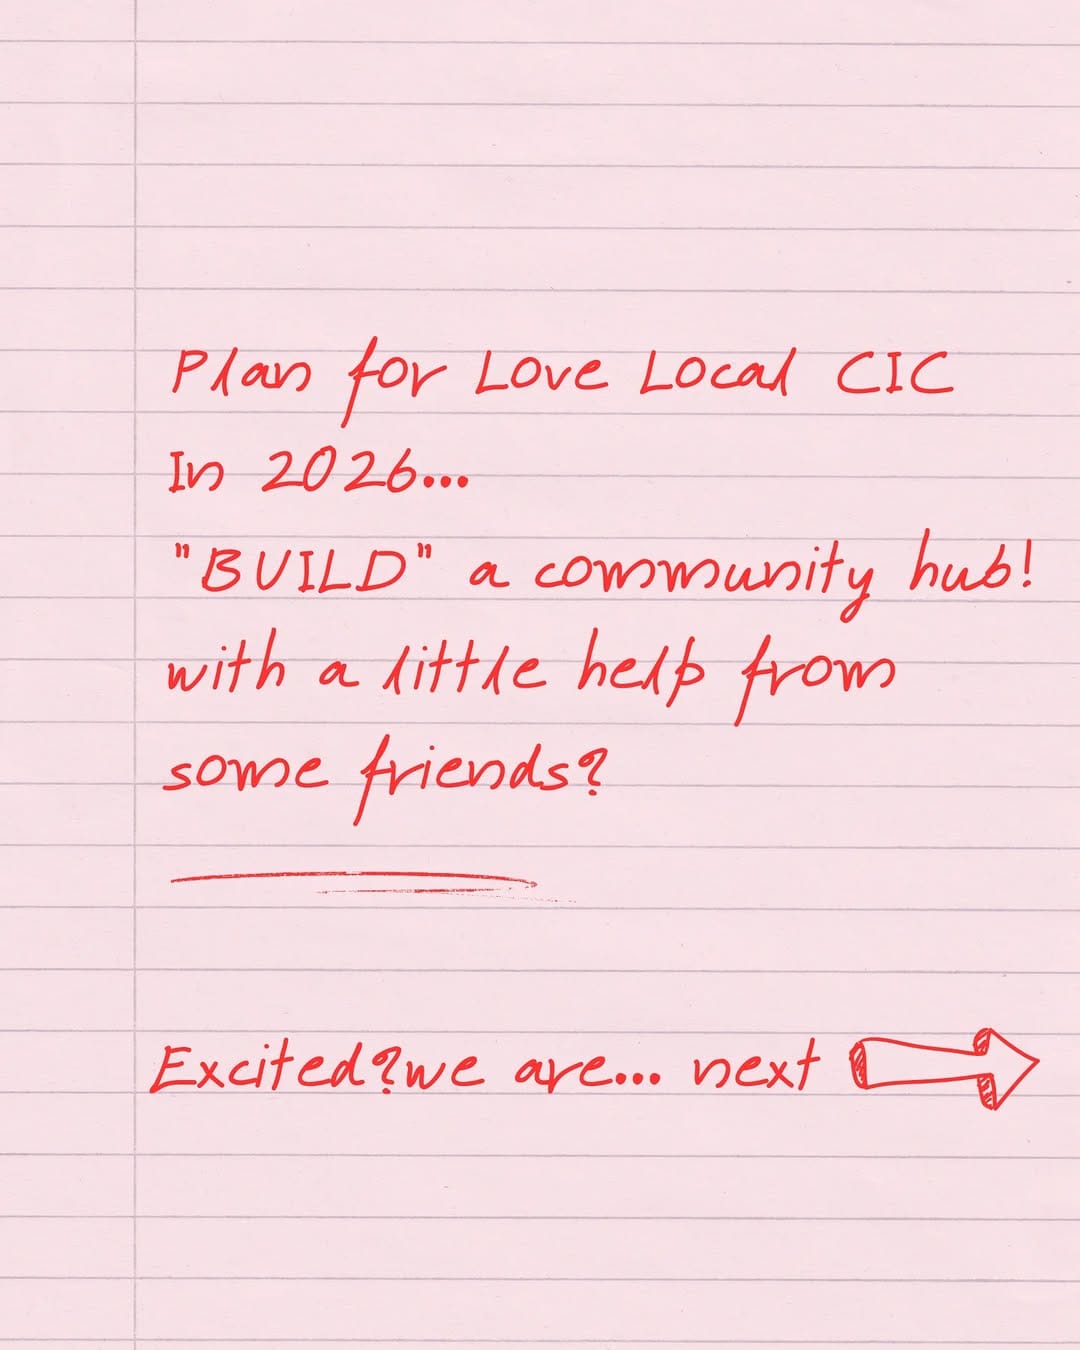 Plan for Love Local CIC
In 2026...
"BUILD" a community hub!
with a little help from
some friends?
Excited?we are... next